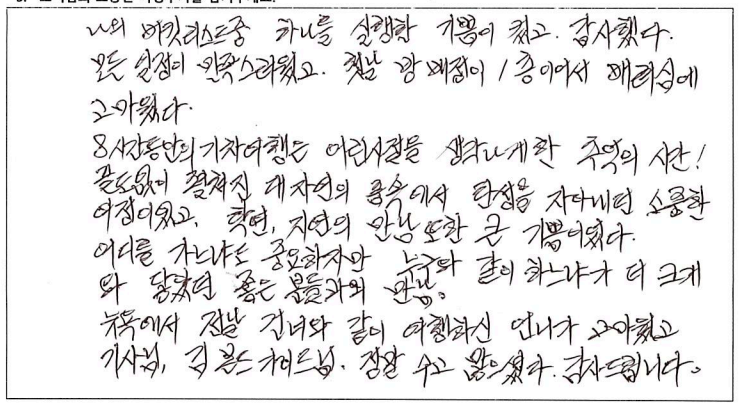 나의 버킷리스트중 하나를 실행할 기쁨이 컸고. 감사했다.
모든 일정이 만족스러웠고. 첫날 방 배정이 1층이어서 배려심에
고마웠다.
8시간동안의 기차여행은 어린시절을 생각나게한 추억의 시간!
끝도없이 펼쳐진 대자연의 풍속에서 탄성을 자아내던 소중한
여정이었고, 학연, 지연의 만남 또한 큰 기쁨이었다.
어디를 가느냐도 중요하지만 누구와 같이 하느냐가 더 크게
와 닿았던 좋은 분들과의 만남.
뉴욕에서 전날 건너와 같이 여행하신 언니가 고마웠고
기사님, 김 가이드님. 정말 수고 많으셨다. 감사드립니다.